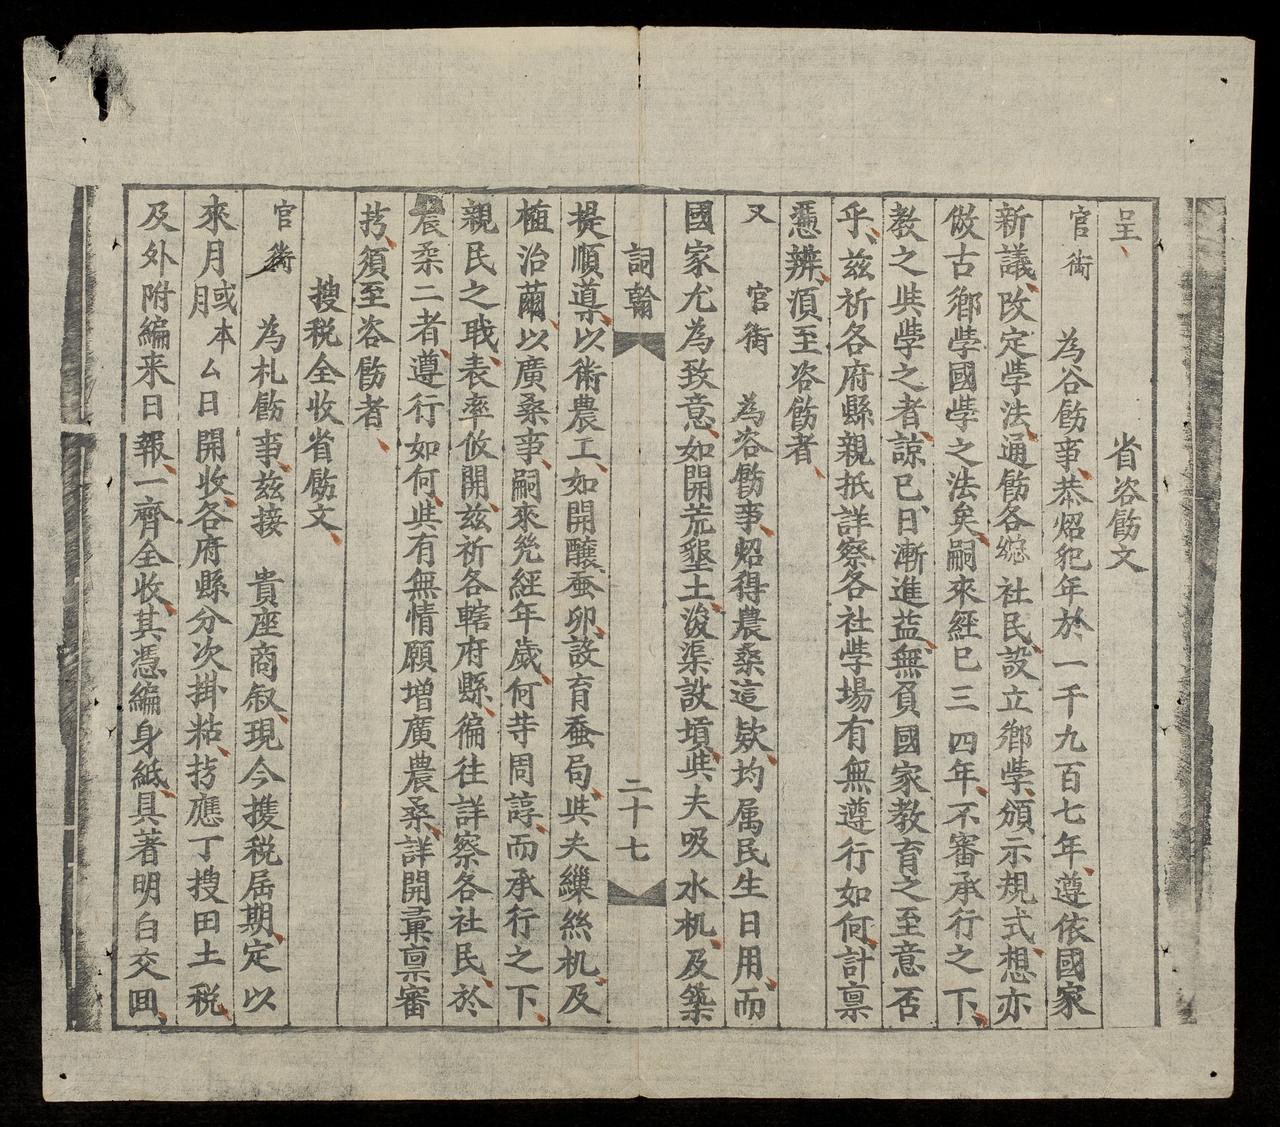 呈　　　省咨飭文
官銜　為咨飭事恭炤犯年於一千九百七年遵依國家
新議改定斈法通飭各總社民設立鄉斈頒示規式想亦
倣古鄉斈國斈之法矣嗣來經已三四年不審承行之下
教之與斈之者諒已日漸進益無負國家教育之至意否
乎兹祈各府縣親抵詳察各社斈場有無遵行如何計禀
憑辨湏至咨飭者
又　官銜　為咨飭事炤得農桑這欵均属民生日用而
國家尤為致意如開荒墾土浚渠設墳與夫吸水机及築
詞翰　二十七
提順導以術農工如開釀蚕卵設育蚕局與夫繅絲机及
植治繭以廣桑事嗣來凣經年歲何等周諄而承行之下
親民之戝表率攸開兹祈各轄府縣徧往詳察各社民於
農桒二者遵行如何與有無情願增廣農桑詳開彙禀審
䔄須至咨飭者
搜税全收省飭文
官銜　為札飭事兹接　貴座商叙現今搜税屆期定以
來月或本月厶日開收各府縣分次掛粘䔄應丁搜田土税
及外附編来日報一齊全收其憑編身紙具著明白交囬